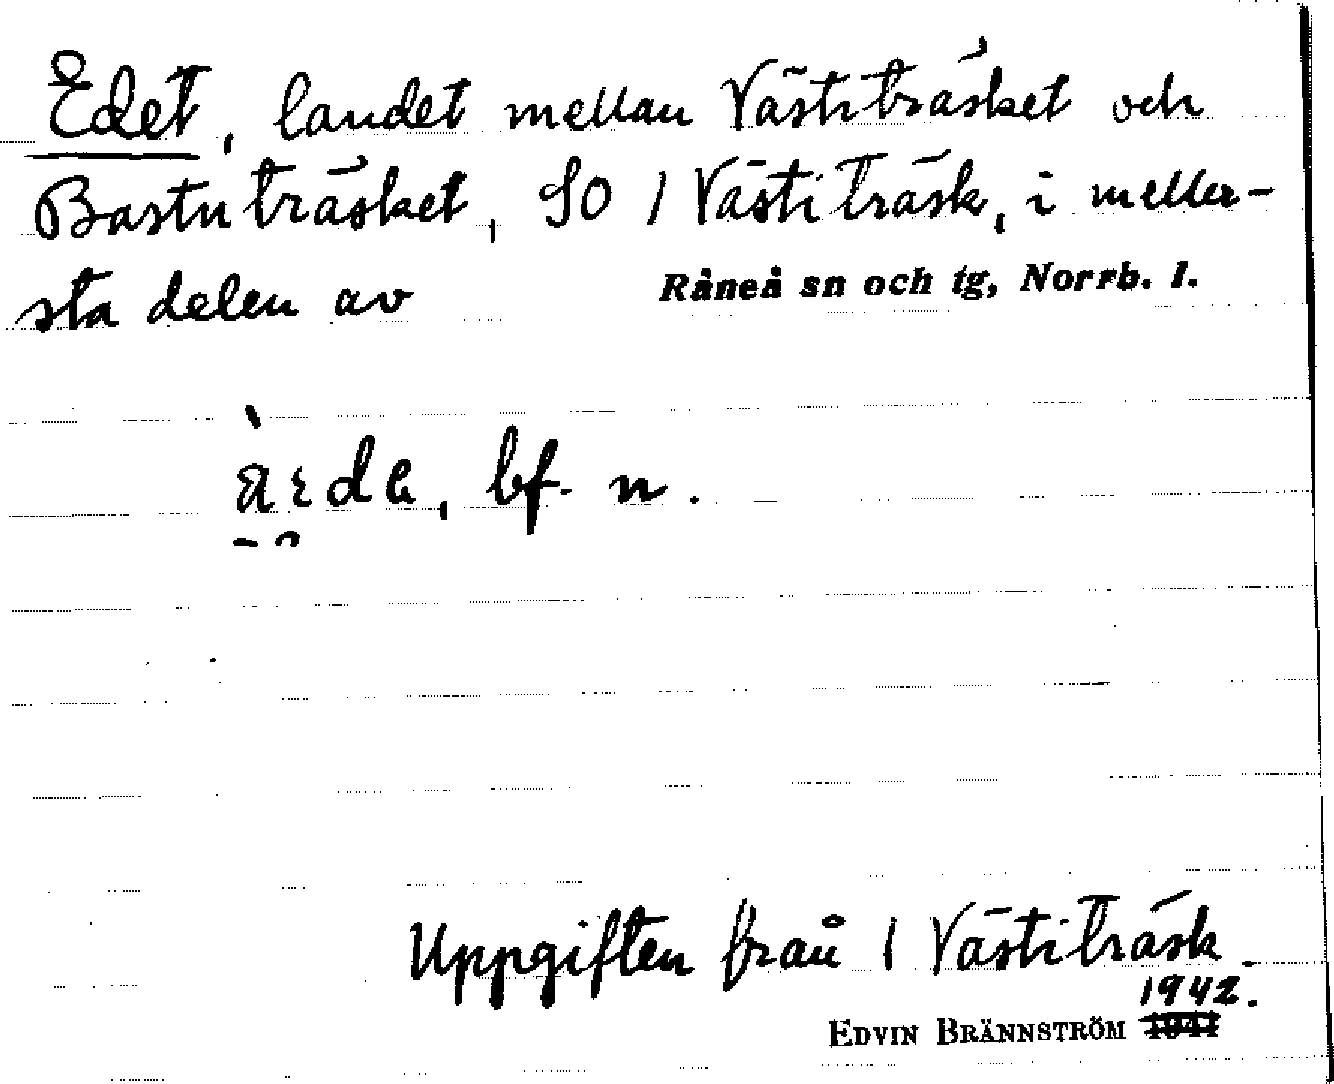 Edet, landet mellan Västiträsket och
Bastuträsket, SO / Västiträsk, i meller-
sta delen av Råneå sn och tg, Norrb. l.
bf. n.
Uppgiften från / Västiträsk.
1942.
EDVIN BRÄNNSTRÖM 1941